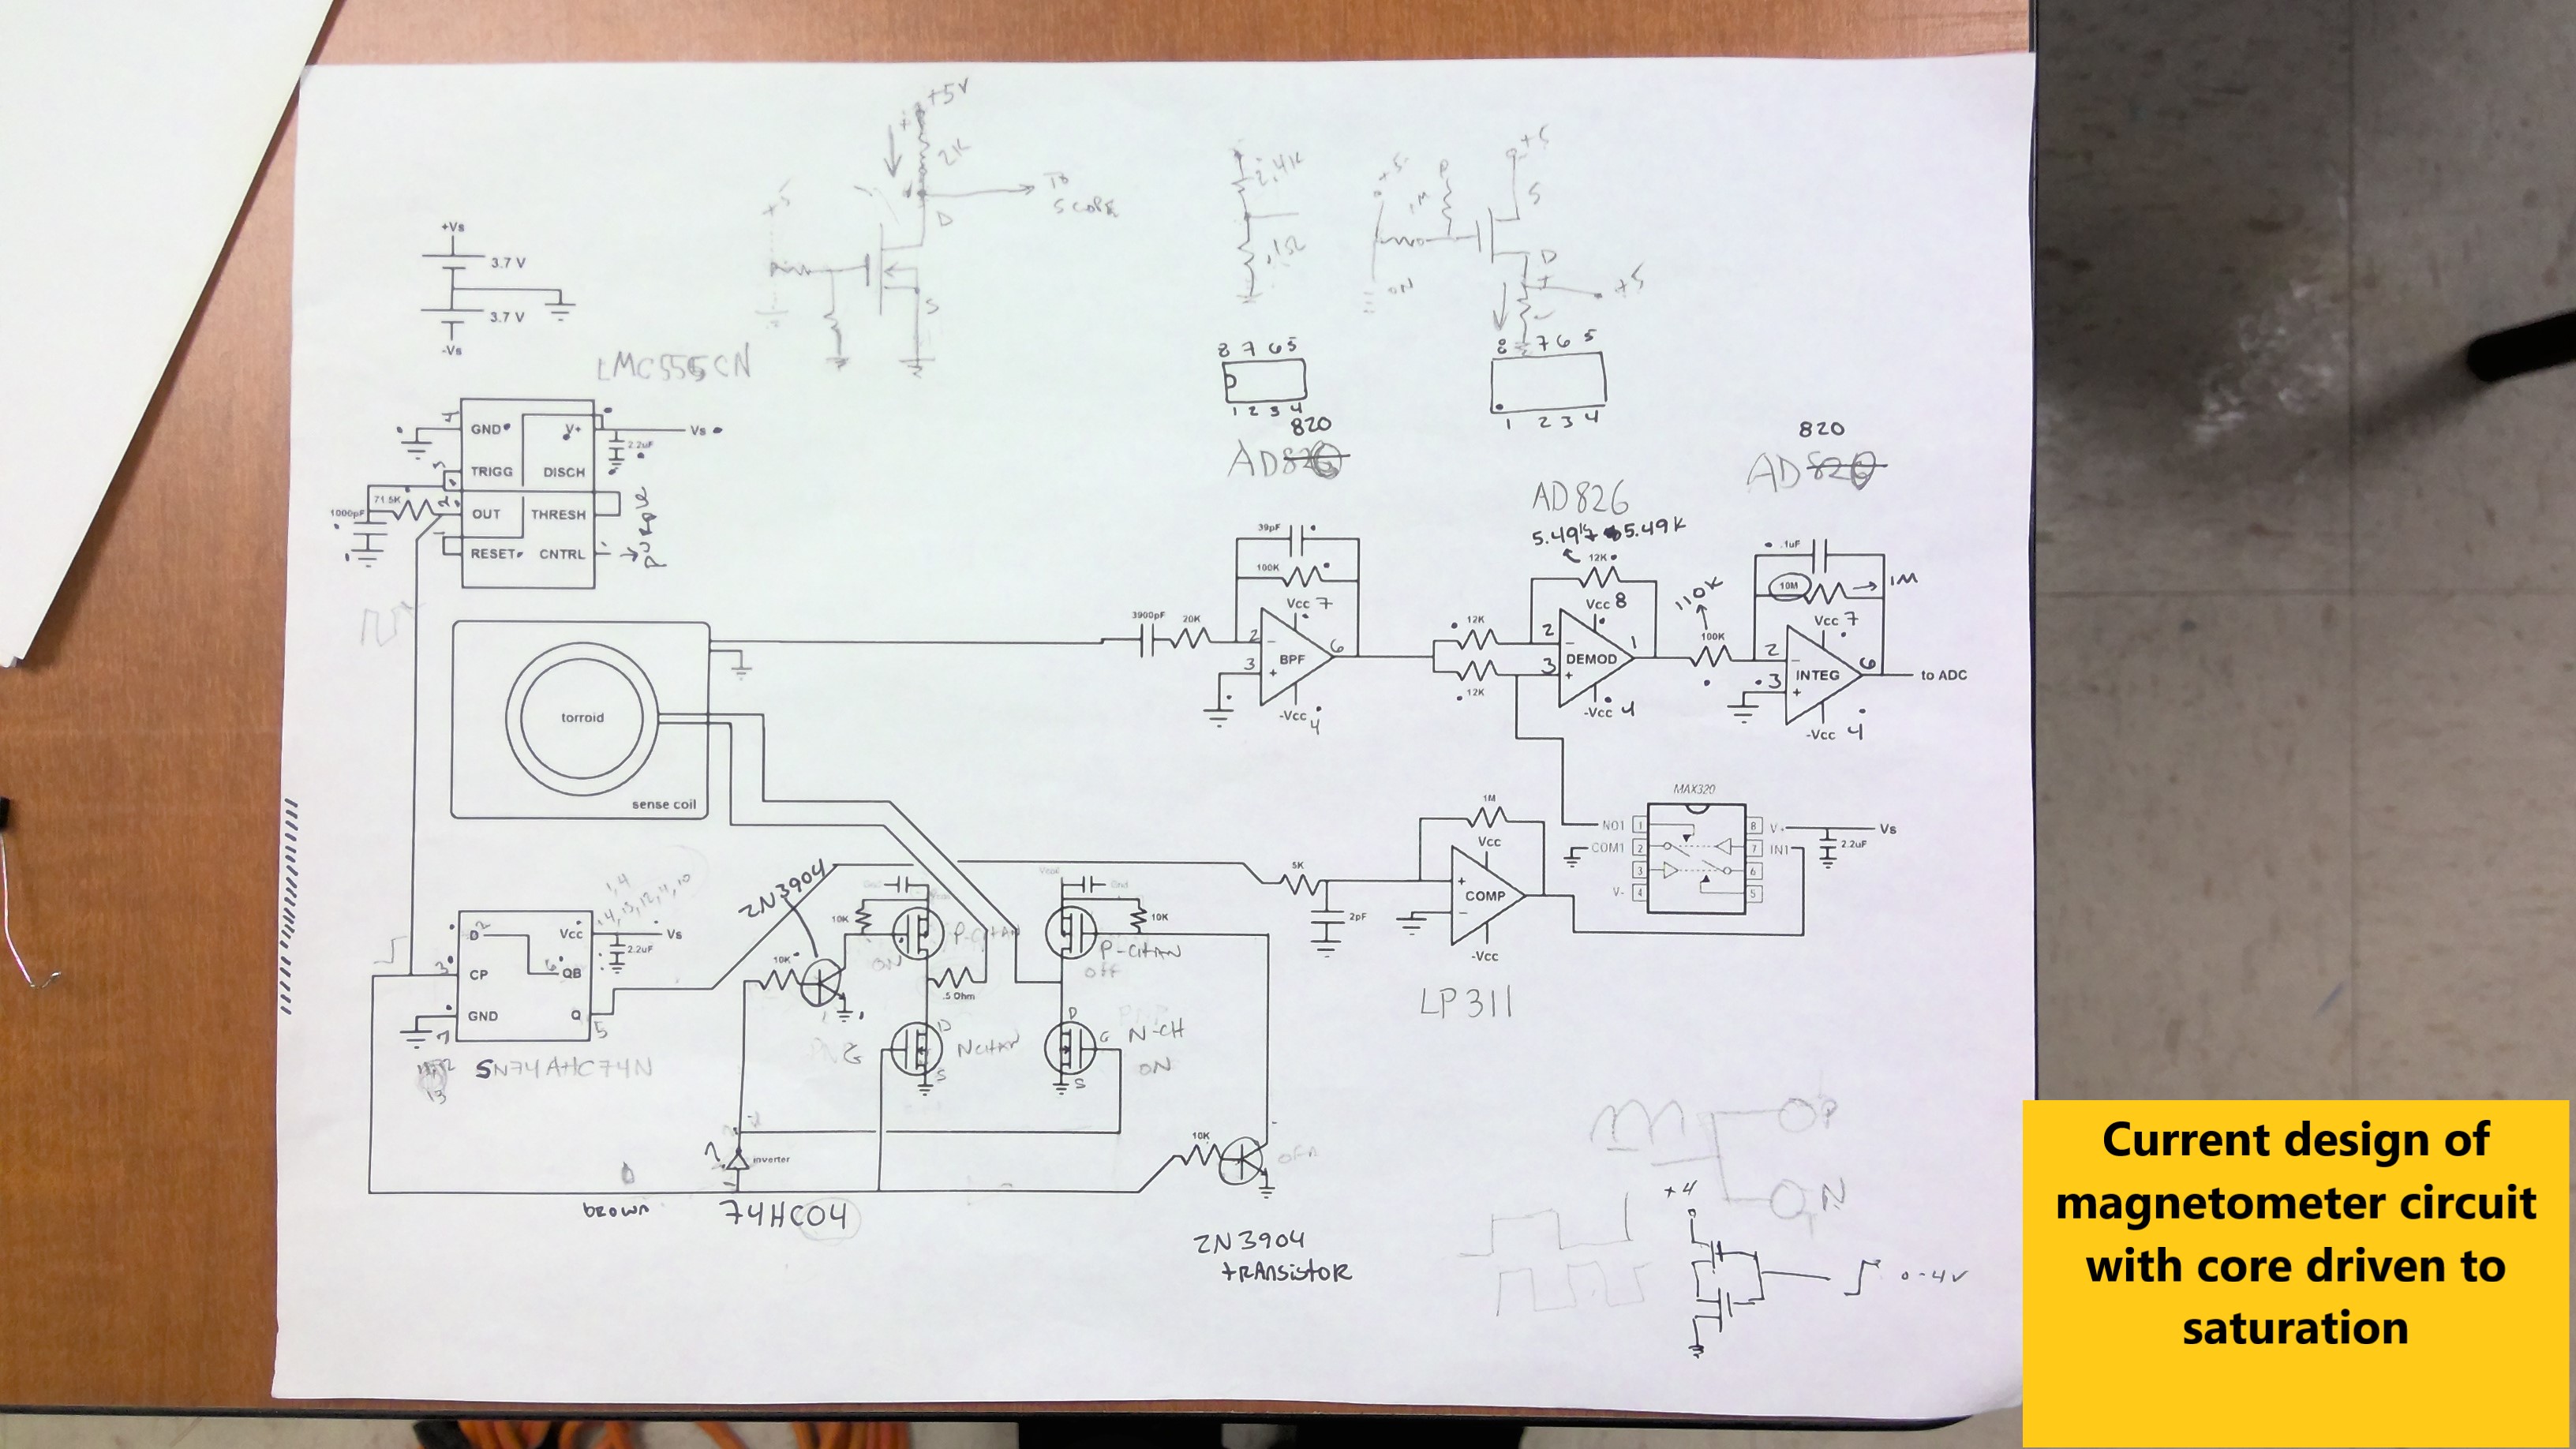 +5V
2K
TO
SCOPE
+5
D
S
2.41K
+5
+5
1M
S
D
ON
+5
+Vs
3.7 V
3.7 V
-Vs
LMC555CN
GND
V+
Vs
2.2uF
TRIGG
DISCH
71.5K
1000pF
OUT
THRESH
RESET
CNTRL
purple
8 7 6 5
1 2 3 4
820
8 7 6 5
1 2 3 4
820
AD826
5.49K
5.49K
39pF
100K
Vcc 7
3900pF
20K
2
3
BPF
6
-Vcc 4
12K
Vcc 8
12K
2
3
DEMOD
1
12K
-Vcc 4
110K
100K
.1uF
10M
1M
Vcc 7
2
3
INTEG
6
to ADC
-Vcc 4
torroid
sense coil
MAX320
NO1 1
8 V+
Vs
COM1 2
7 IN1
2.2uF
3
6
V- 4
5
1M
Vcc
5K
2pF
COMP
-Vcc
LP311
2N3904
D 2
Vcc
Vs
2.2uF
3 CP
6 QB
GND
7
Q
5
SN74AHC74N
13
10K
10K
P-CHAN
ON
.5 Ohm
Gnd
10K
P-CHAN
OFF
D
NCHAN
S
D
G
N-CH
ON
S
2
inverter
1
brown
74HC04
10K
2N3904
TRANSISTOR
P
N
+4
0-4V
Current design of
magnetometer circuit
with core driven to
saturation